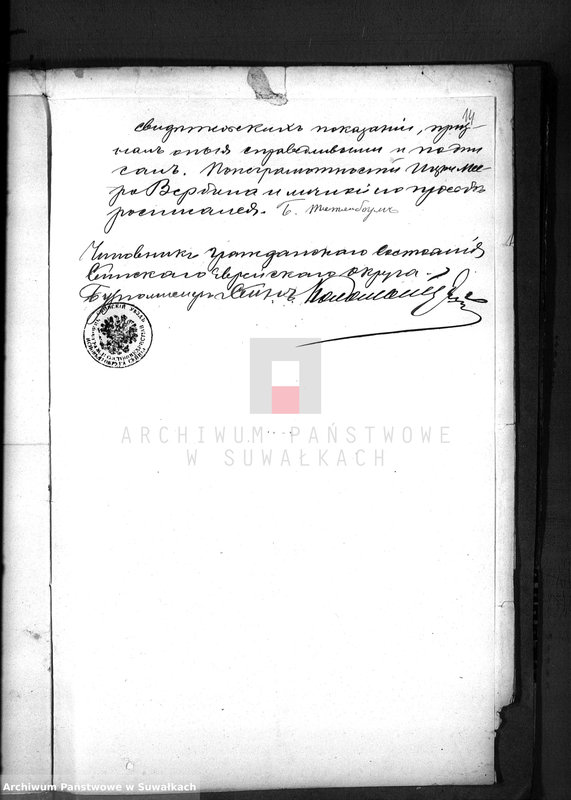 14
свидѣтельскихъ показаній, приз-
налъ оныя справедливыми и подпи
салъ. По неграмотности Ицки Мее-
ра Вербина и личной по просьбѣ
росписался. Б.
Чиновникъ Гражданскаго Состоянія
Сейнскаго Еврейскаго Округа
Бургомистръ Сейнъ
ARCHIWUM PAŃSTWOWE
W SUWAŁKACH
Archiwum Państwowe w Suwałkach